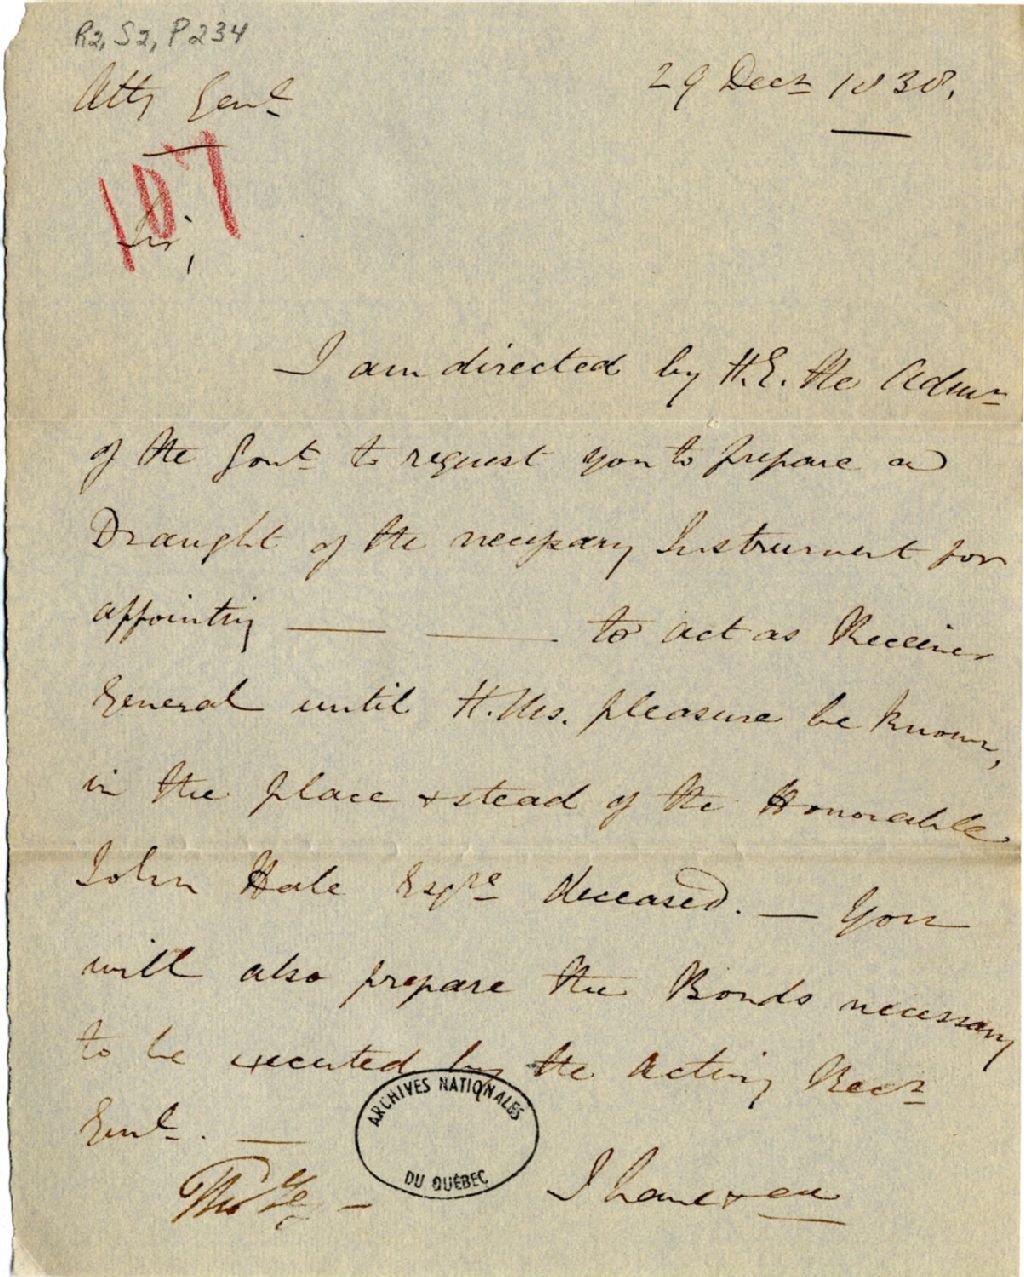 R2, S2, P234
Atty Genl
29 Decr 1838.
107
Sir,
I am directed by H.E. the Admr
of the Govt to request you to prepare a
Draught of the necessary Instrument for
appointing —— —— to act as Receiver
General until H.Ms. pleasure be known,
in the place & stead of the Honorable
John Hale Esqre deceased. — You
will also prepare the Bonds necessary
to be executed by the Acting Recr
Genl. —
ARCHIVES NATIONALES
DU QUÉBEC
I have &ca